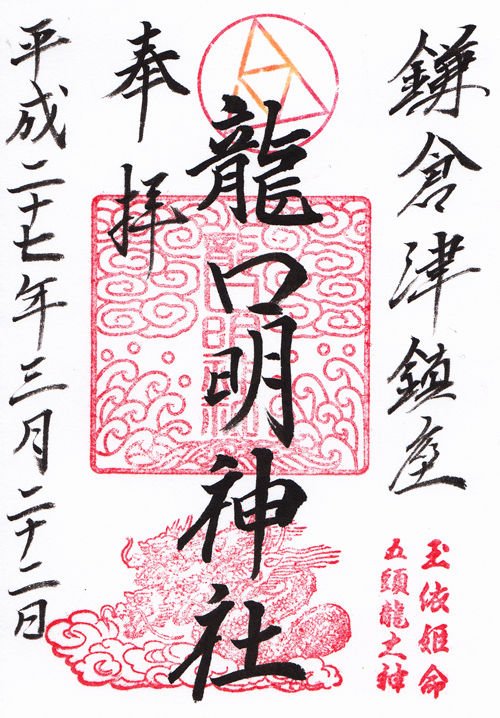 鎌倉津鎮座
玉依姫命
五頭龍大神
龍口明神社
龍口明神社
奉拝
平成二十七年三月二十二日